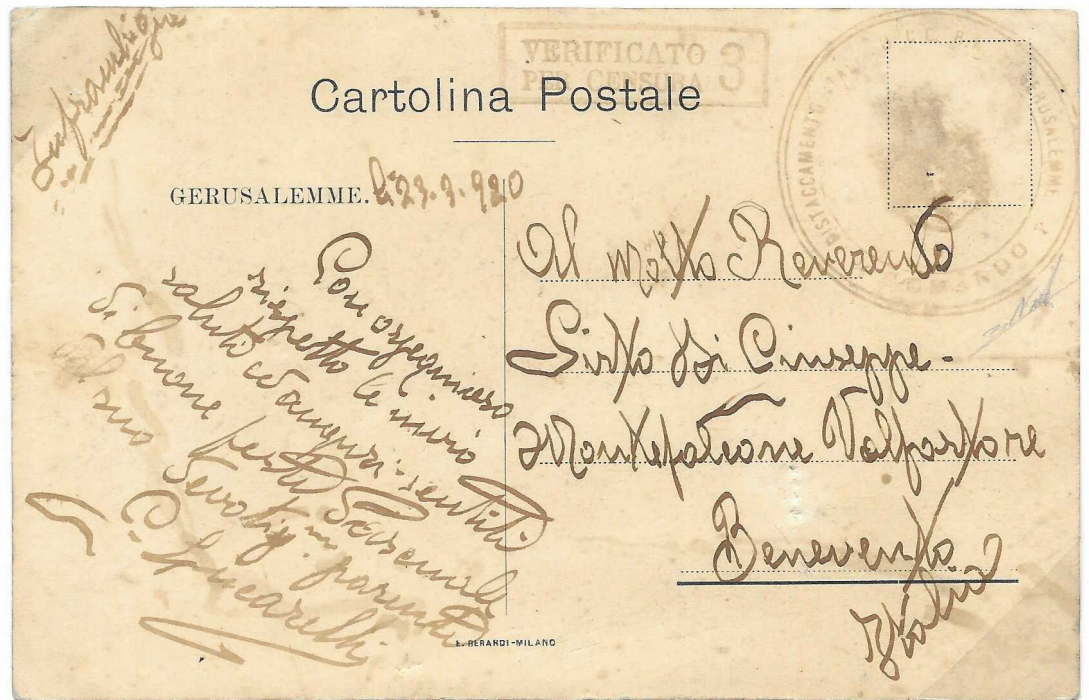 In franchigia
VERIFICATO
PER CENSURA 3
Cartolina Postale
DISTACCAMENTO GERUSALEMME
COMANDO
GERUSALEMME. li 23.3.920
Con ossequioso
rispetto le invio
saluti ed auguri sentiti
di buone feste Pascuali
dal suo Devotis.mo parente
C. Lucarelli
Al molto Reverendo
Sisto Di Giuseppe -
Montefalcone Valfortore
Benevento
Italia
E. BERARDI-MILANO